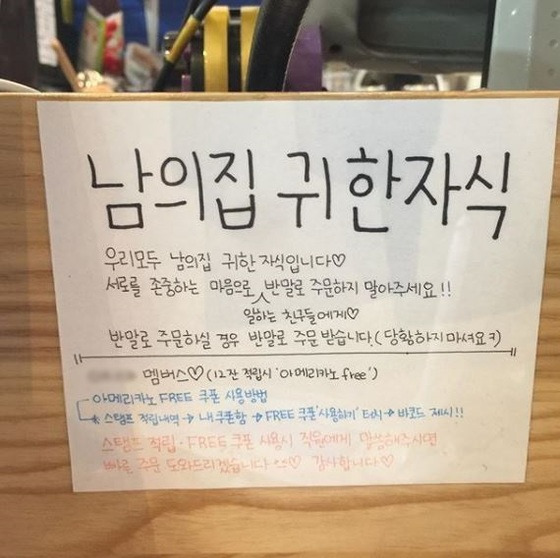 남의집 귀한자식
우리모두 남의집 귀한 자식입니다♡
서로를 존중하는 마음으로 반말로 주문하지 말아주세요!!
일하는 친구들에게♡
반말로 주문하실 경우 반말로 주문 받습니다.(당황하지 마셔요ㅋ)
멤버스♡(12잔 적립시 '아메리카노 free')
아메리카노 FREE 쿠폰 사용방법
* 스탬프 적립내역 → 내쿠폰함 → FREE 쿠폰 '사용하기' 터치 → 바코드 제시!!
스탬프 적립·FREE 쿠폰 사용시 직원에게 말씀해주시면
빠른 주문 도와드리겠습니다^^♡ 감사합니다♡